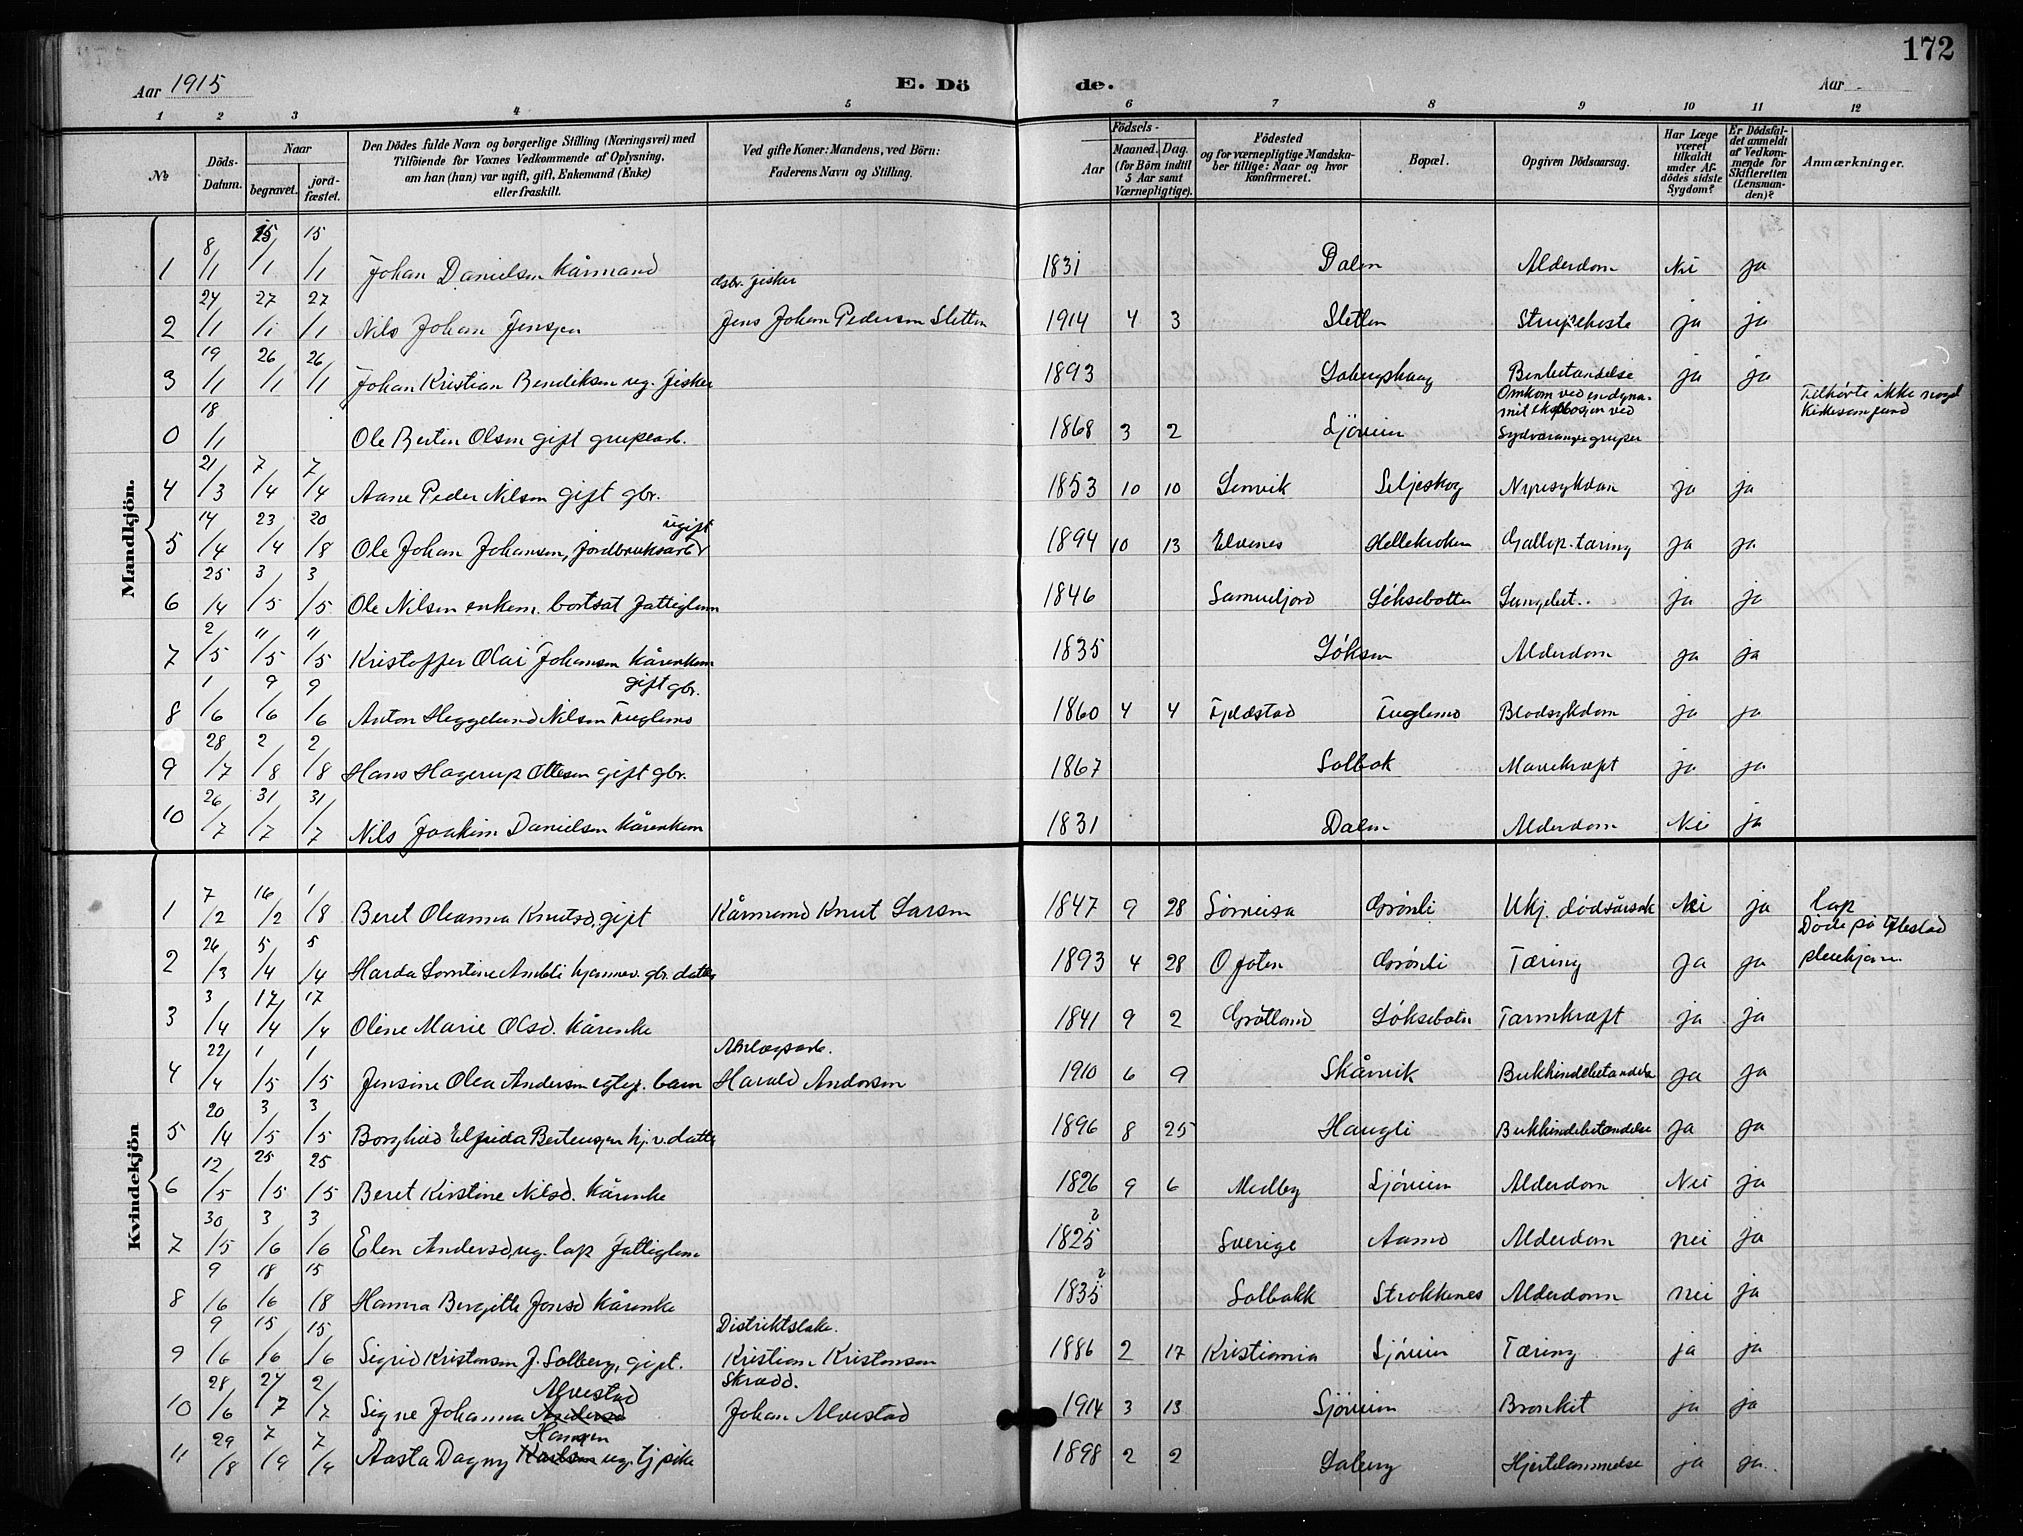 172
Aar 1915
E. Dö
de.
Aar
1 2 3 4 5 6 7 8 9 10 11 12
No
Döds-Datum.
Naar
begravet.
jord-fæstet.
Den Dödes fulde Navn og borgerlige Stilling (Næringsvei) med
Tilföiende for Voxnes Vedkommende af Oplysning,
om han (hun) var ugift, gift, Enkemand (Enke)
eller fraskilt.
Ved gifte Koner: Mandens, ved Börn:
Faderens Navn og Stilling.
Födsels-
Aar
Maaned. Dag.
(for Börn indtil
5 Aar samt
Værnepligtige).
Födested
og for værnepligtige Mandska-
ber tillige: Naar og hvor
konfirmeret.
Bopæl.
Opgiven Dödsaarsag.
Har Læge
været
tilkaldt
under Af-
dödes sidste
Sygdom?
Er Dödsfal-
det anmeldt
af Vedkom-
mende for
Skifteretten
(Lensman-
den)?
Anmærkninger.
Mandkjön.
1 8/1 15/1 15/1 Johan Danielsen kårmand 1831 Dalen Alderdom Nei ja
2 24/1 27/1 27/1 Nils Johan Jensen dsbr. fisker Jens Johan Pedersen Sletten 1914 4 3 Sletten Strupehoste ja ja
3 19/1 26/1 26/1 Johan Kristian Bendiksen ug. fisker 1893 Benbetændelse ja ja
0 18/1 Ole Bertin Olsen gift grupearb. 1868 3 2 Sjøveien Omkom ved en dyna-
mit eksplosjon ved
Sydvaranger gruper Tilhørte ikke noget
Kirkesamfund
4 21/3 7/4 7/4 Aane Peder Nilsen gift gbr. 1853 10 10 Lenvik Seljeskog Nyresykdom ja ja
5 14/4 23/4 20/8 Ole Johan Johansen, jordbruksarb. ugift 1894 10 13 Elvenes Hellekroken Gallop. tæring ja ja
6 25/4 3/5 3/5 Ole Nilsen enkem. bortsat fattiglem 1846 Løksebotn Lungebet.. ja ja
7 2/5 11/5 11/5 Kristoffer Olai Johansen kårenkem 1835 Løksen Alderdom ja ja
8 1/6 9/6 9/6 Anton Heggelund Nilsen Fuglemo gift gbr. 1860 4 4 Fjeldstad Fuglemo Blodsykdom ja ja
9 28/7 2/8 2/8 Hans Hagerup Ottesen gift gbr. 1867 Solbak Mavekræft ja ja
10 26/7 31/7 31/7 Nils Joakim Danielsen kårenkem 1831 Dalen Alderdom Nei ja
Kvindekjön
1 7/2 16/2 1/8 Beret Oleanna Knutsd, gift Kårmand Knut Larsen 1847 9 28 Sørreisa Grønli Ukj. dødsårsak Nei ja Lap
2 26/3 5/4 5/4 Harda 1893 4 28 Ofoten Grønli Tæring ja ja Døde på Ibestad
pleiehjem
3 3/4 17/4 17/4 Oline Marie Olsd. kårenke 1841 9 2 Grøtland Løksebotn Tarmkræft ja ja
4 22/4 1/5 1/5 Jensine Olea Andersen egtef. barn Anlægsarb. Harald Andersen 1910 6 9 Skårvik Bukhindebetændelse ja ja
5 20/4 3/5 3/5 Borghild Elfrida Bertensen hj.v. datter 1896 8 25 Haugli Bukhindebetændelse ja ja
6 12/5 25/5 25/5 Beret Kirstine Nilsd. kårenke 1826 9 6 Medby Sjøveien Alderdom Nei ja
7 30/5 3/6 3/6 Elen Andersd, ug. lap fattiglem 1825 ? Sverige Aamo Alderdom nei ja
8 9/6 18/6 15/8 Hanna Bergitte Jonsd kårenke 1835 ? Solbakk Strokkenes Alderdom nei ja
9 9/6 15/6 15/6 Sigrid Kristensen f. Solberg, gift. Distriktslæke. Kristian Kristensen 1886 2 17 Kristiania Sjøveien Tæring ja ja
10 28/6 24/7 2/7 Signe Johanna Andersd Alvestad Skrædd. Johan Alvestad 1914 3 13 Sjøveien Bronkit ja ja
11 29/8 7/9 7/4 Aasta Dagny Karlsen Hansen ug. tj pike 1898 2 2 Hjertelammelse ja ja.